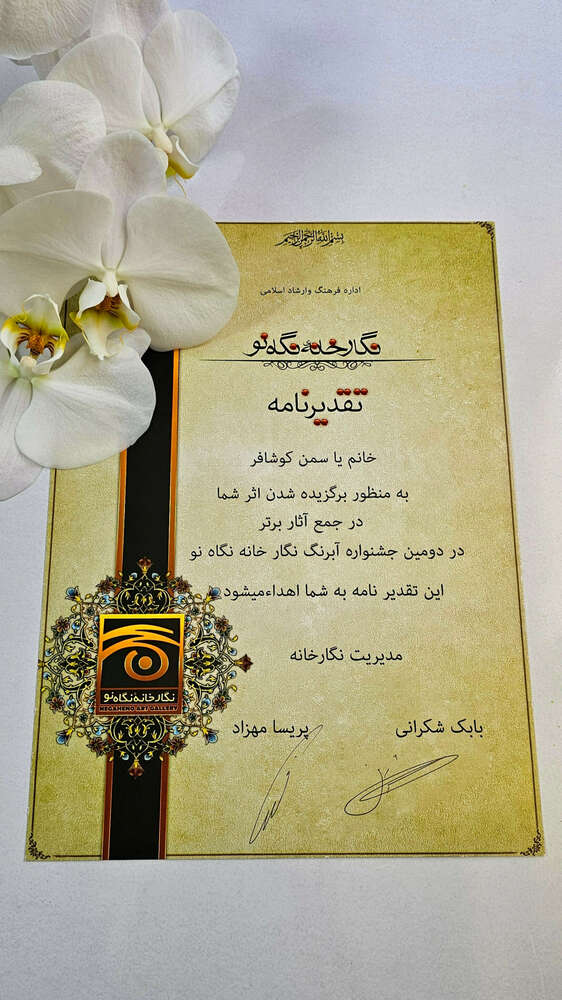 بسم الله الرحمن الرحیم
اداره فرهنگ وارشاد اسلامی
نگارخانه نگاه نو
تقدیرنامه
خانم یا سمن کوشافر
به منظور برگزیده شدن اثر شما
در جمع آثار برتر
در دومین جشنواره آبرنگ نگار خانه نگاه نو
این تقدیر نامه به شما اهداءمیشود
مدیریت نگارخانه
بابک شکرانی
پریسا مهزاد
نگارخانه نگاه نو
NEGAHENO ART GALLERY